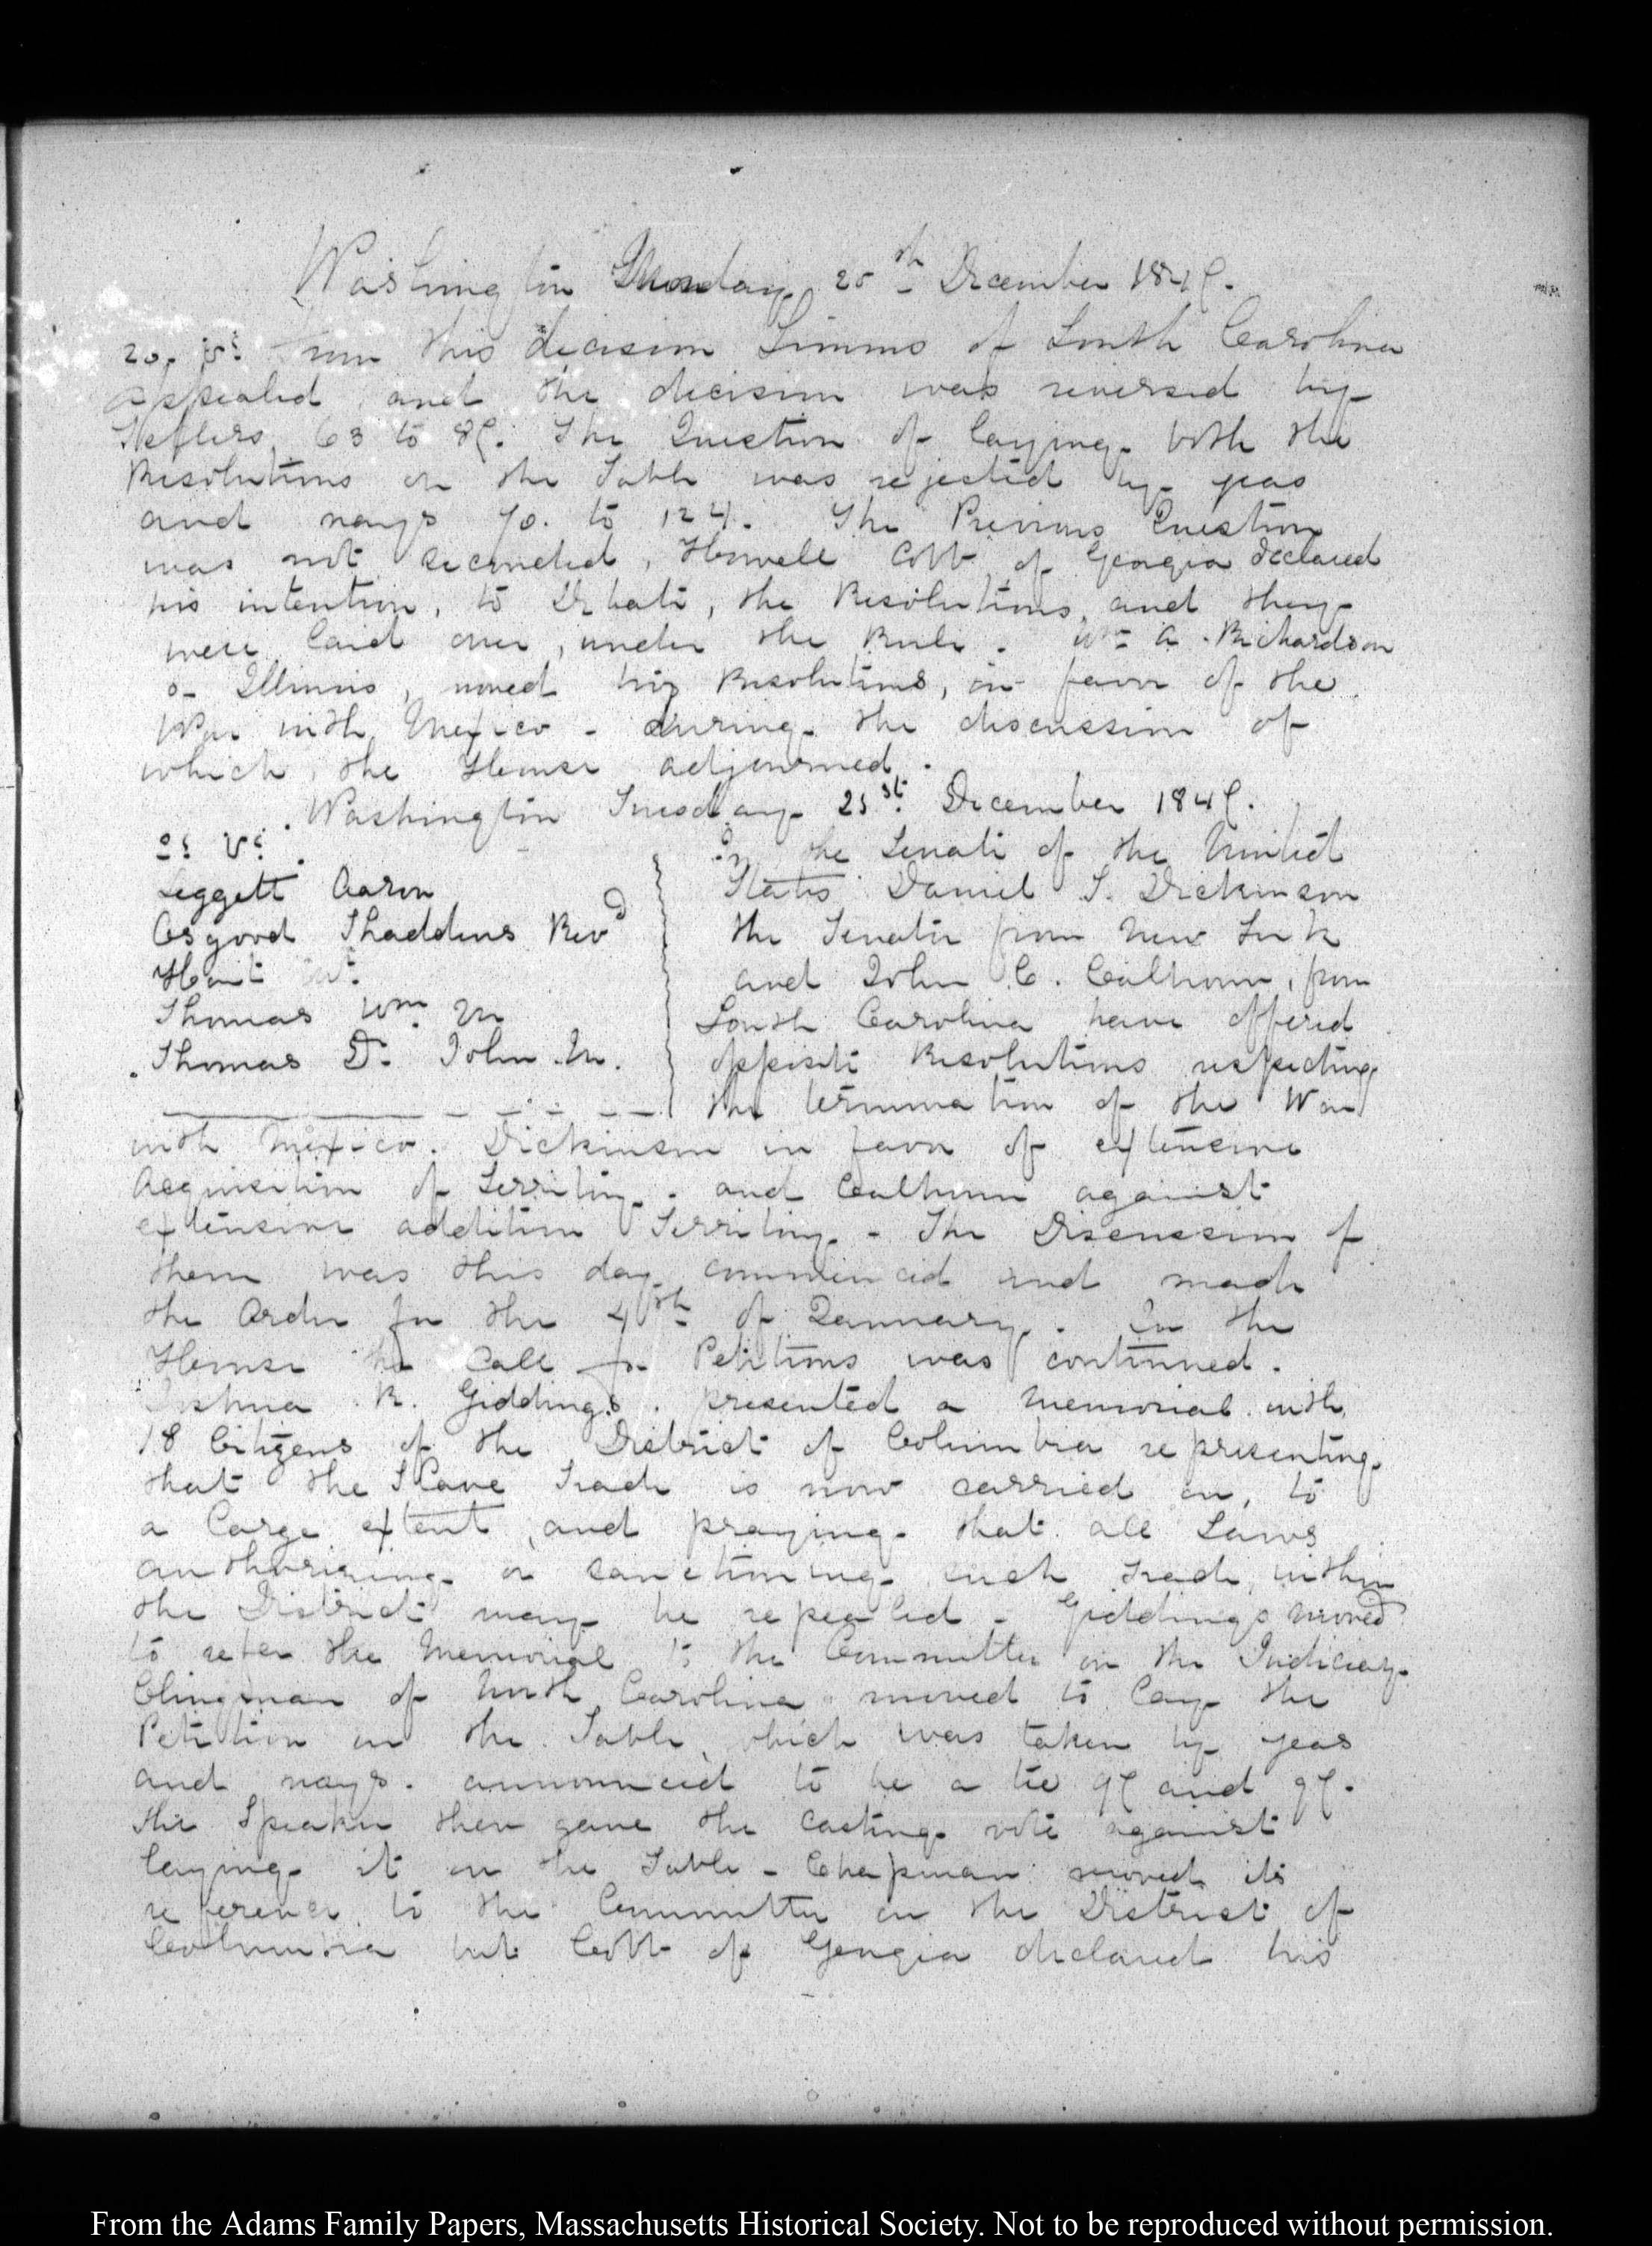 Washington Monday 20th December 1847.
20. V: From this decision Simms of South Carolina
appealed and the decision was reversed by
Tellers 63 to 87. The Question of laying both the
Resolutions on the Table was rejected by yeas
and nays 70. to 124. The Previous Question
was not seconded, Howell Cobb of Georgia declared
his intention, to Debate, the Resolutions, and they
were laid over, under the Rule. Wm A. Richardson
of Illinois, moved his Resolutions, in favor of the
War with Mexico - during the discussion of
which, the House adjourned.
Washington Tuesday 21st. December 1847.
V:
Leggett Aaron
Osgood Thaddeus Revd
Thomas Wm M
Thomas D. John M.
In the Senate of the United
States Daniel S. Dickinson
the Senator from New York
and John C. Calhoun, from
South Carolina have offered
opposite Resolutions respecting
the termination of the War
with Mexico. Dickinson in favor of extensive
Acquisition of Territory. and Calhoun against
extensive addition Territory - The Discussion of
them was this day commenced and made
the Order for the 4th of January. In the
House the Call for Petitions was continued.
Joshua R. Giddings. presented a memorial with
18 Citizens of the District of Columbia representing
that the Slave Trade is now carried on, to
a large extent, and praying that all Laws
authorising or sanctioning such trade, within
the District may be repealed - Giddings moved
to refer the Memorial to the Committee on the Judiciary.
Clingman of North Carolina moved to lay the
Petition on the Table, which was taken by yeas
and nays. announced to be a tie 97 and 97.
the Speaker then gave the casting vote against
laying it on the Table - Chapman moved its
reference to the Committee on the District of
Columbia but Cobb of Georgia declared his
From the Adams Family Papers, Massachusetts Historical Society. Not to be reproduced without permission.